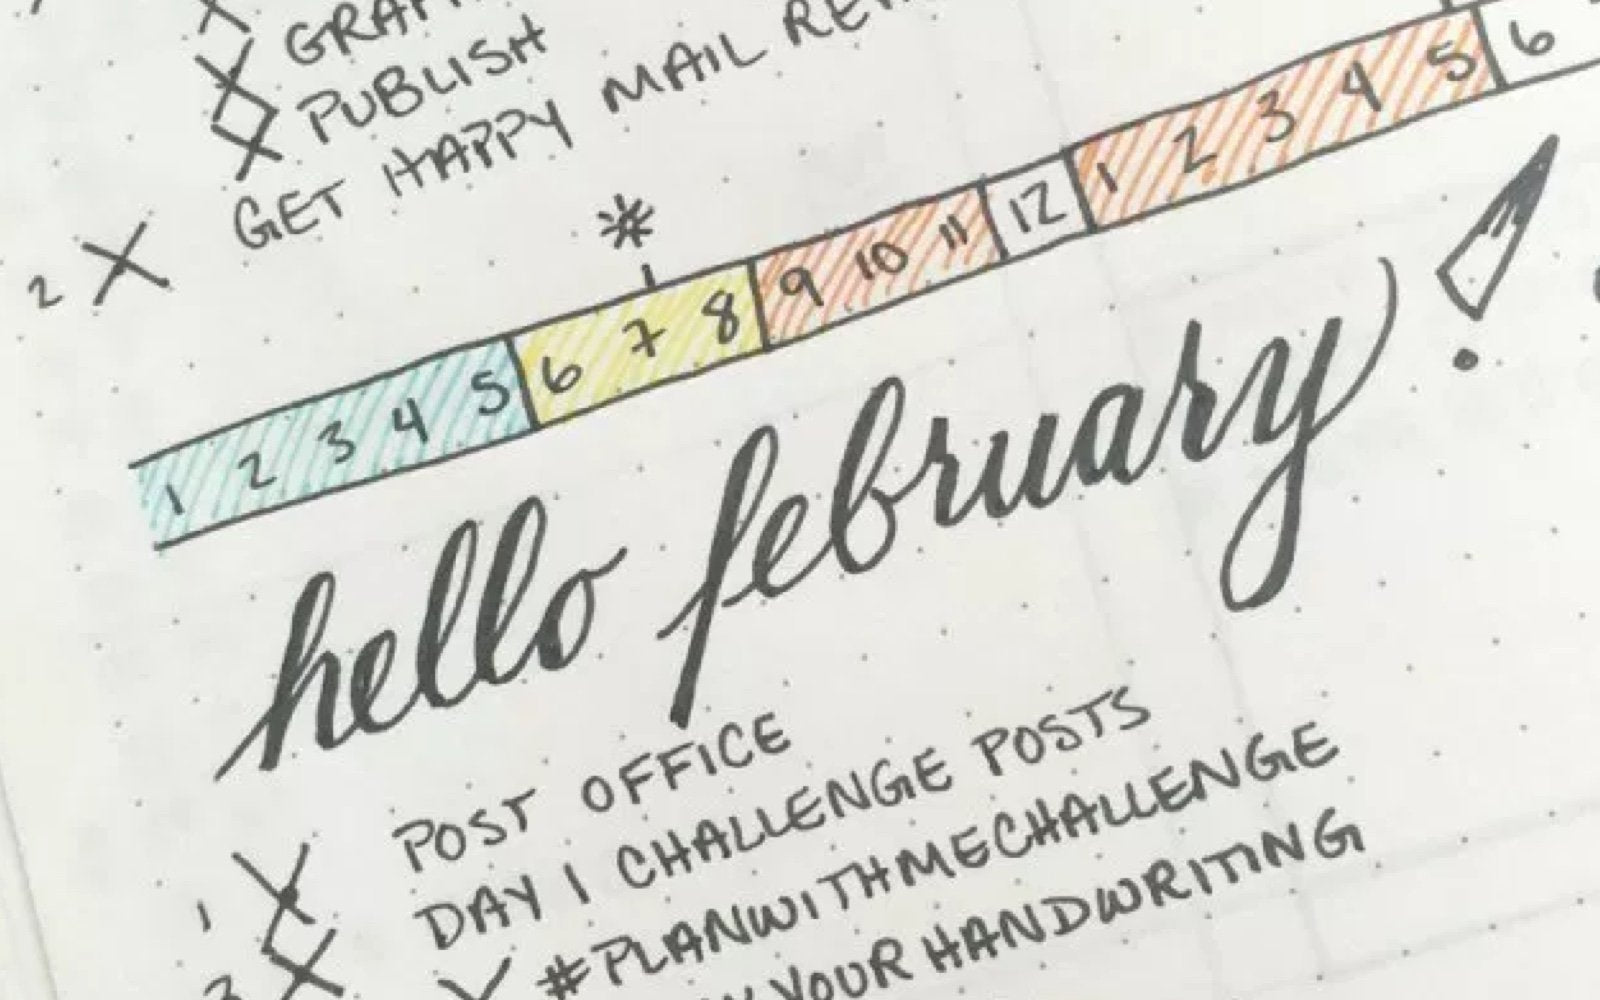 PUBLISH
2 X GET HAPPY MAIL
*
1 2 3 4 5 6 7 8 9 10 11 12 1 2 3 4 5 6
hello february!
1 X POST OFFICE
DAY 1 CHALLENGE POSTS
#PLANWITHMECHALLENGE
YOUR HANDWRITING